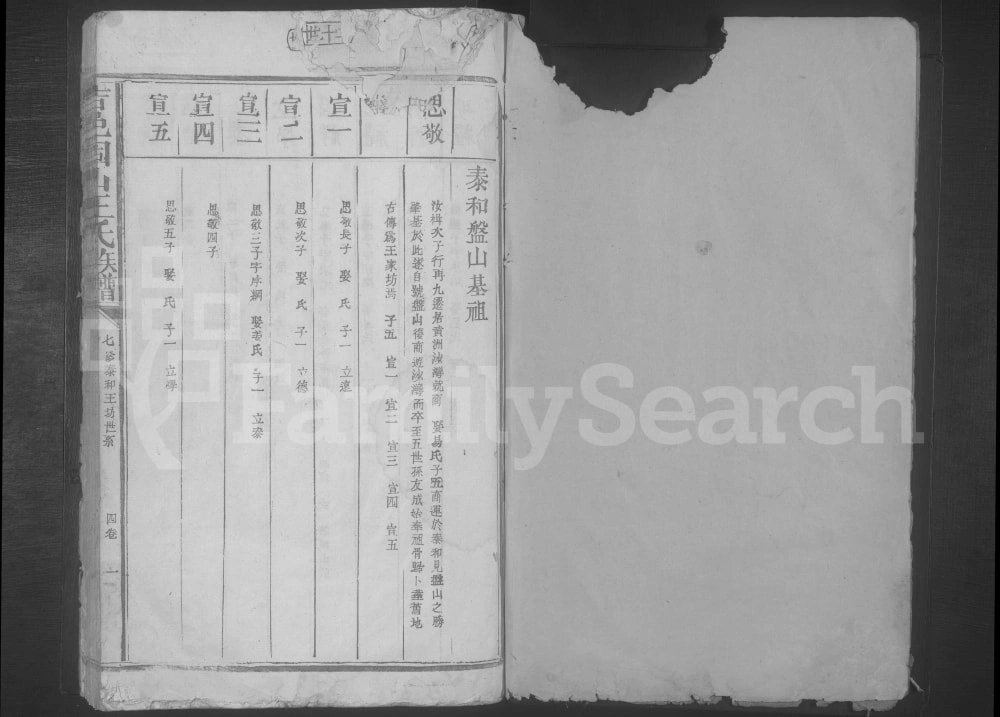 十世
泰和盤山基祖
思敬
汝楫次子行再九遷居黃洲汝灣就商 娶易氏子五商運於泰和見盤山之勝
華基於此遂自號盤山後商遊汝灣而卒至五世孫友成始奉頑骨歸卜葬舊地
古傳爲王家坊 子五 宣一 宣二 宣三 宣四 宣五
宣一
思敬長子 娶 氏 子一 立遠
宣二
思敬次子 娶 氏 子一 立德
宣三
思敬三子字序綱 娶姜氏 子一 立泰
宣四
思敬四子
宣五
思敬五子 娶 氏 子一 立學
吉邑固山王氏族譜
七修泰和王坊世系
四卷
一
FamilySearch